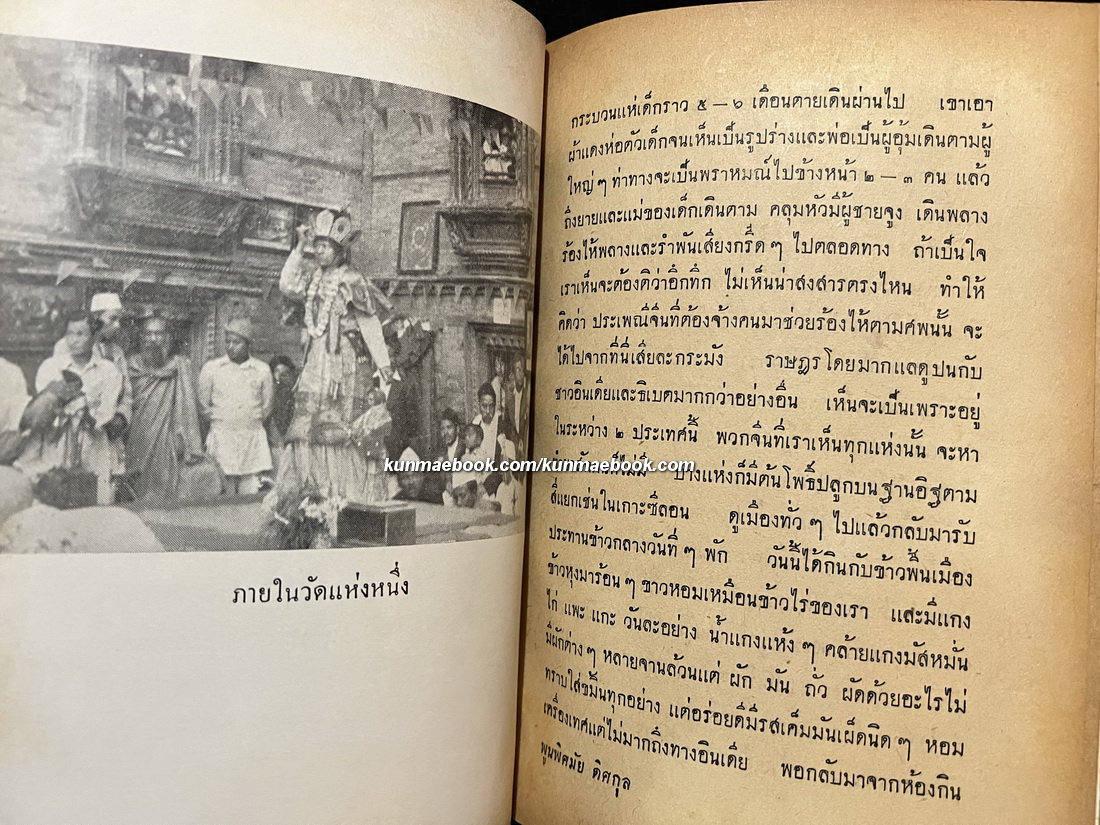 ภายในวัดแห่งหนึ่ง
กระบวนแห่เด็กราว ๕ — ๖ เดือนตายเดินผ่านไป เขาเอา
ผ้าแดงห่อตัวเด็กจนเห็นเป็นรูปร่างและพ่อเป็นผู้อุ้มเดินตามผู้
ใหญ่ ๆ ท่าทางจะเป็นพราหมณ์ไปข้างหน้า ๒ — ๓ คน แล้ว
ถึงยายและแม่ของเด็กเดินตาม คลุมหัวมีผู้ชายจูง เดินพลาง
ร้องไห้พลางและรำพันเสียงกรี๊ด ๆ ไปตลอดทาง ถ้าเป็นใจ
เราเห็นจะต้องติว่าอึกทึก ไม่เห็นน่าสงสารตรงไหน ทำให้
คิดว่า ประเพณีจีนที่ต้องจ้างคนมาช่วยร้องไห้ตามศพนั้น จะ
ได้ไปจากที่นี่เสียละกระมัง ราษฎรโดยมากแลดูปนกับ
ชาวอินเดียและธิเบตมากกว่าอย่างอื่น เห็นจะเป็นเพราะอยู่
ในระหว่าง ๒ ประเทศนี้ พวกจีนที่เราเห็นทุกแห่งนั้น จะหา
ก็ไม่มี บางแห่งก็มีต้นโพธิ์ปลูกบนฐานอิฐตาม
สี่แยกเช่นในเกาะซีลอน ดูเมืองทั่ว ๆ ไปแล้วกลับมารับ
ประทานข้าวกลางวันที่ ๆ พัก วันนี้ได้กินกับข้าวพื้นเมือง
ข้าวหุงมาร้อน ๆ ขาวหอมเหมือนข้าวไร่ของเรา และมีแกง
ไก่ แพะ แกะ วันละอย่าง น้ำแกงแห้ง ๆ คล้ายแกงมัสหมั่น
มีผักต่าง ๆ หลายจานล้วนแต่ ผัก มัน ถั่ว ผัดด้วยอะไรไม่
ทราบใส่ขมิ้นทุกอย่าง แต่อร่อยดีมีรสเค็มมันเผ็ดนิด ๆ หอม
เครื่องเทศแต่ไม่มากถึงทางอินเดีย พอกลับมาจากห้องกิน
พูนพิศมัย ดิศกุล
kunmaebook.com/kunmaebook.com